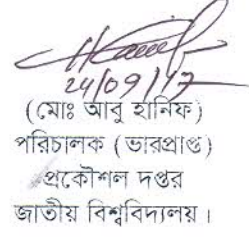 24/09/17
(মোঃ আবু হানিফ)
পরিচালক (ভারপ্রাপ্ত)
প্রকৌশল দপ্তর
জাতীয় বিশ্ববিদ্যালয়।